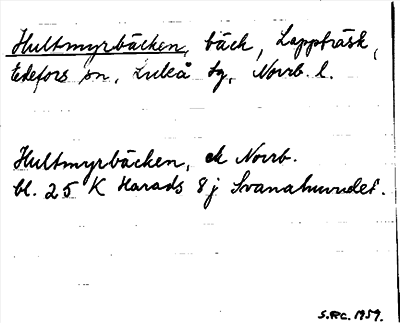 Hultmyrbäcken, bäck, Lappträsk,
Edefors sn, Luleå tg, Norrb. l.
Hultmyrbäcken, ek Norrb.
bl. 25 K Harads 8 j Svanahuvudet.
S.RC. 1959.